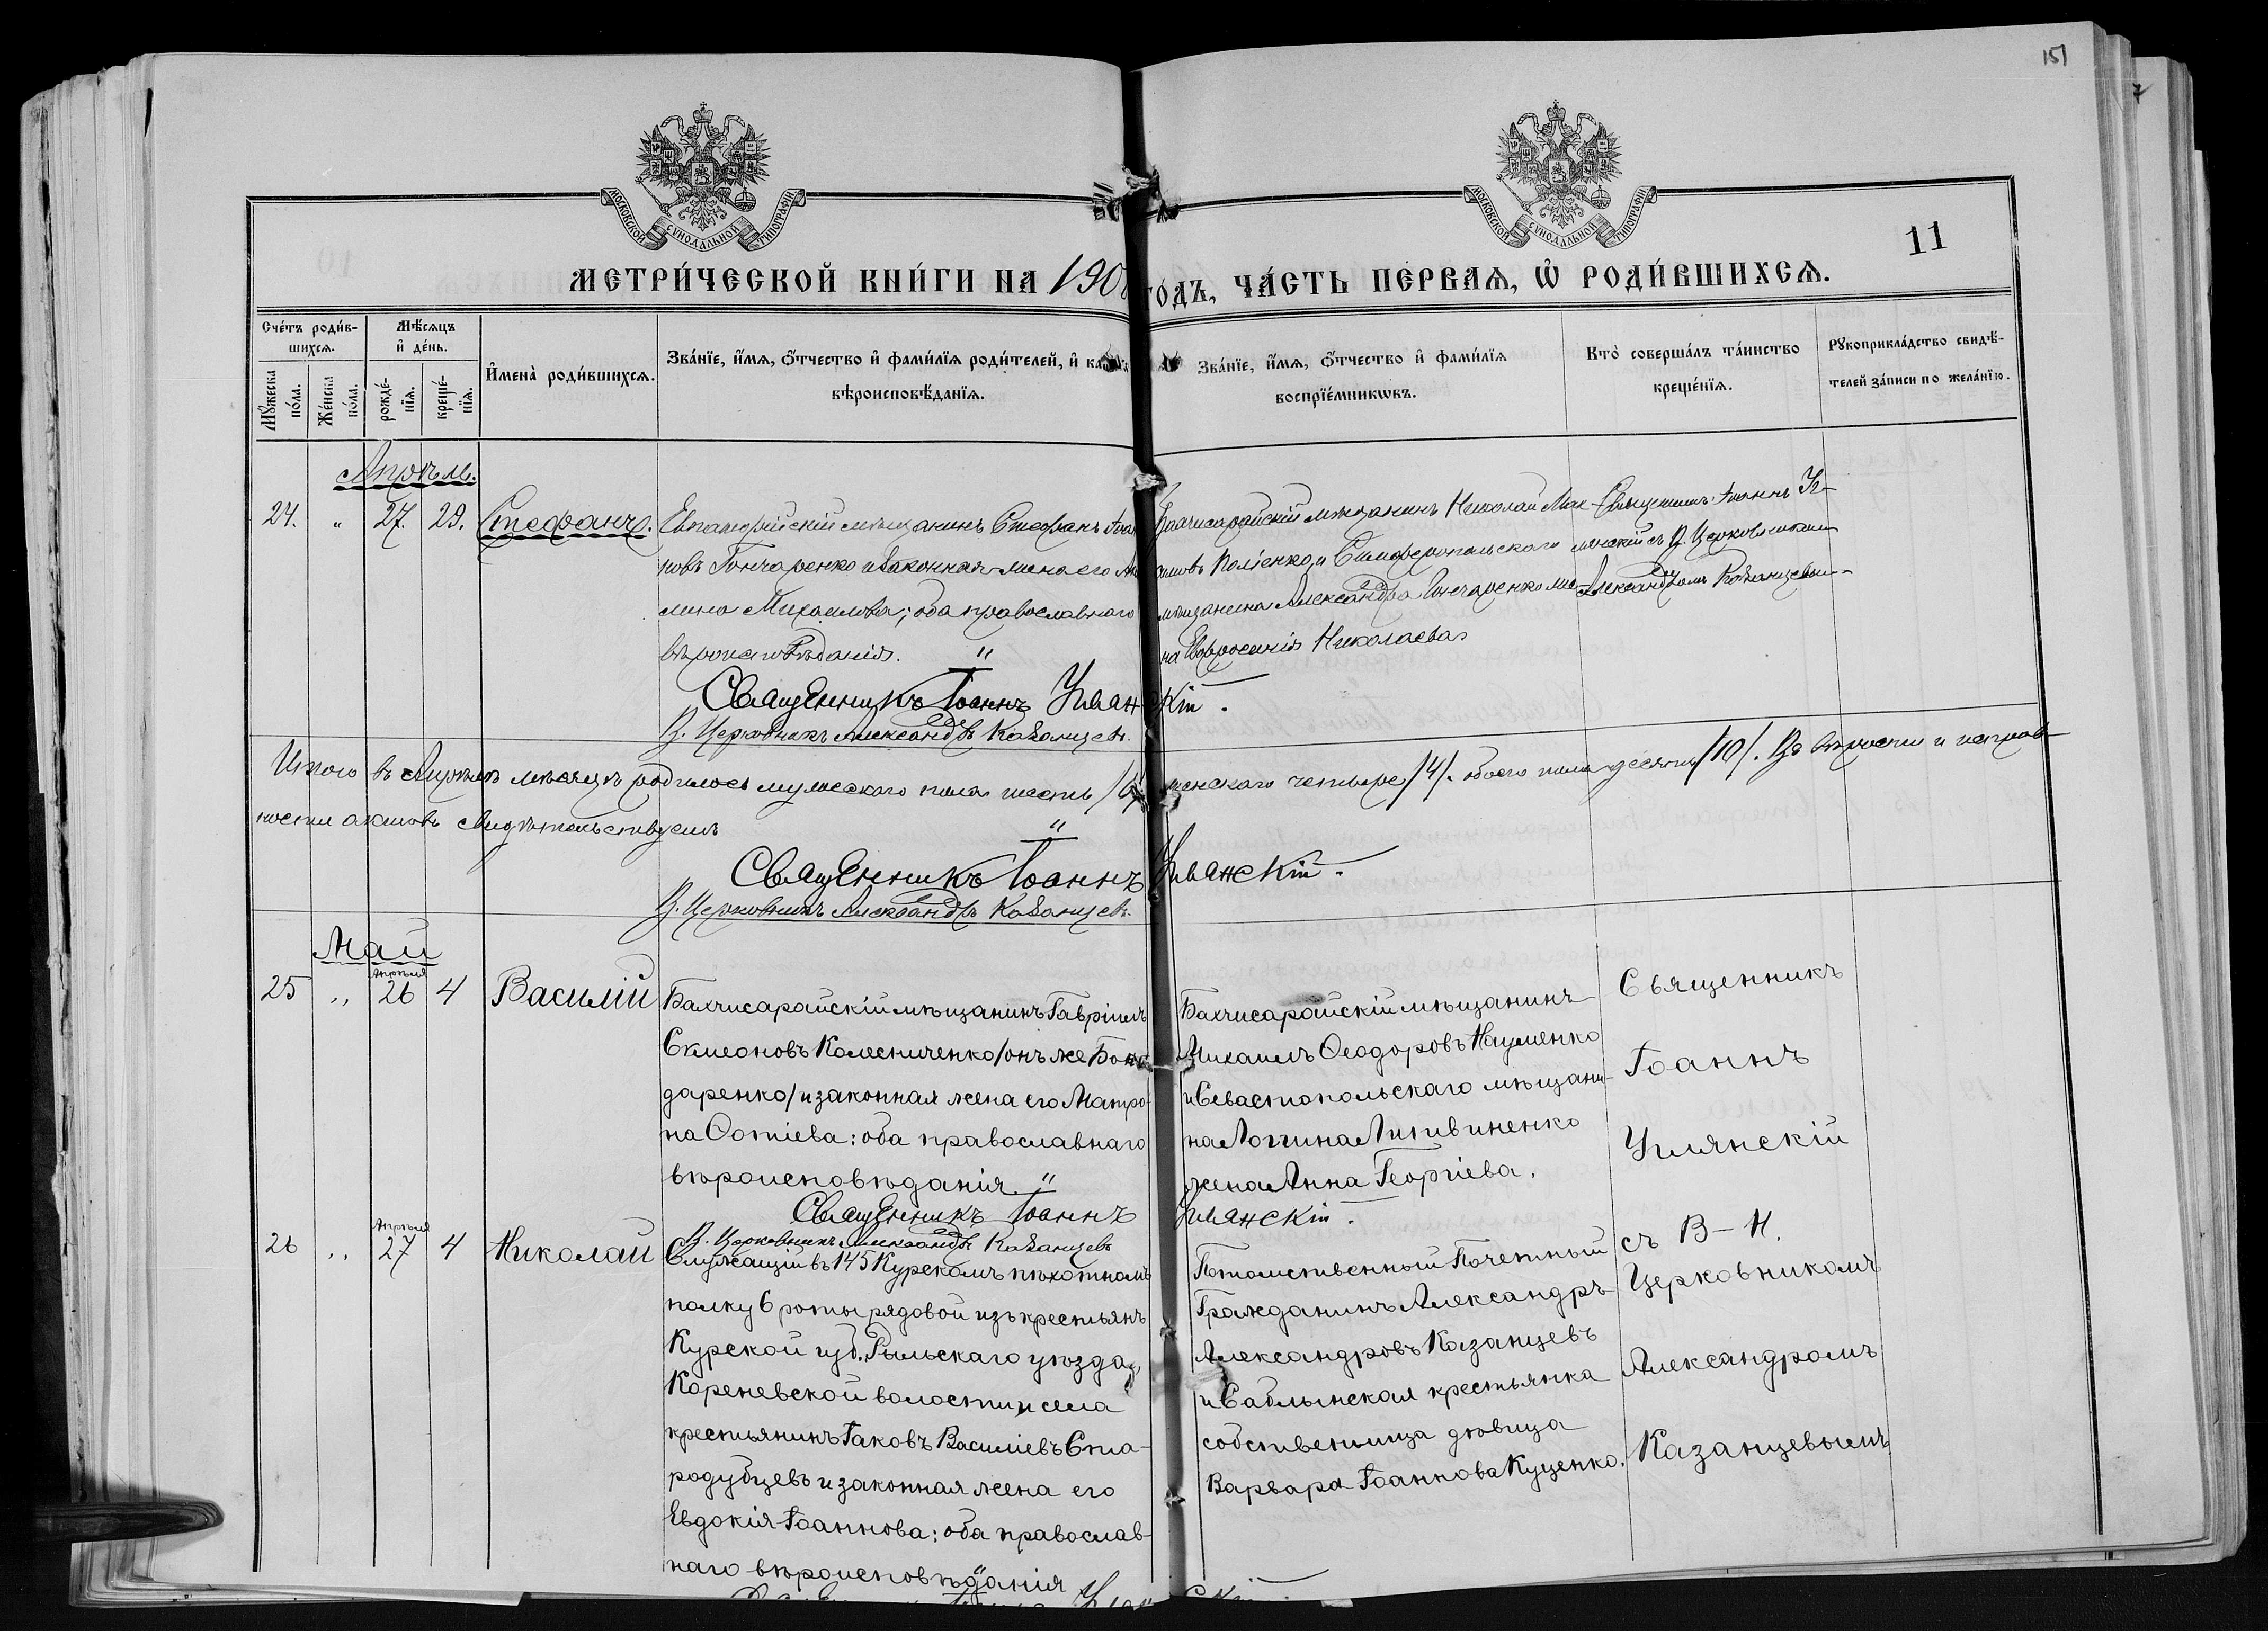 151
7
МОСКОВСКОЙ СѴНОДАЛЬНОЙ ТИПОГРАФІИ
МОСКОВСКОЙ СѴНОДАЛЬНОЙ ТИПОГРАФІИ
11
МЕТРИ́ЧЕСКОЙ КНИ́ГИ НА 190
го́дъ, ЧА́СТЬ ПЕ́РВАѦ, Ѡ҆ РОДИ́ВШИХСѦ.
Сче́тъ роди́в-
шихсѧ.
Мꙋ́жеска
по́ла.
Же́нска
по́ла.
Мѣ́сѧцъ
и҆ де́нь.
рожде́-
нїѧ.
креще́-
нїѧ.
И҆мена̀ роди́вшихсѧ.
Зва́нїе, и҆́мѧ, ѻ҆́тчество и҆ фами́лїѧ роди́телей, и҆
вѣроисповѣ́данїѧ.
Зва́нїе, и҆́мѧ, ѻ҆́тчество и҆ фами́лїѧ
воспрїе́мникѡвъ.
Кто̀ соверша́лъ та́инство
креще́нїѧ.
Рꙋкоприкла́дство свидѣ́-
телей за́писи по жела́нїю.
Апрѣль.
24. " 27. 29. Стефанъ.
Евпаторійскій мѣщанинъ Стефанъ Іоан
новъ Гончаренко и законная жена его
Михаилова; оба православнаго
вѣроисповѣданія. "
Бахчисарайскій мѣщанинъ Николай Мак-
симовъ и Симферопольскаго
мѣщанина Александра Гончаренко же-
на Евфросинія Николаева
Священникъ Іоаннъ Уг-
лянскій съ В. Церковникомъ
Александромъ Казанцевым
Священникъ Іоаннъ Углянскій.
В. Церковникъ Александръ Казанцевъ.
Итого въ Апрѣлѣ мѣсяцѣ родилось мужескаго пола шесть /6/, женскаго четыре /4/. обоего пола десять /10/. Въ вѣрности и исправ-
ности актовъ свидѣтельствуемъ "
Священникъ Іоаннъ Углянскій.
В. Церковникъ Александръ Казанцевъ.
Май
25 " Апрѣля 26 4 Василій
Бахчисарайскій мѣщанинъ Гавріилъ
Симеоновъ Колесниченко /онъ же Бон-
даренко/ и законная жена его Матро-
на Фотіева: оба православнаго
вѣроисповѣданія "
Бахчисарайскій мѣщанинъ
Михаилъ Ѳеодоровъ Науменко
и Севастопольскаго мѣщани-
на Логгина Литвиненко
жена Анна Георгіева.
Священникъ
Іоаннъ
Углянскій
съ В-И.
Церковникомъ
Александромъ
Казанцевымъ
Священникъ Іоаннъ Углянскій.
В. Церковникъ Александръ Казанцевъ
26 " Апрѣля 27 4 Николай
Служащій въ 145 Курскомъ пѣхотномъ
полку 6 роты рядовой изъ крестьянъ
Курской губ. Рыльскаго уѣзда,
Кореневской волости и села
крестьянинъ Іаковъ Василіевъ Ста-
родубцевъ и законная жена его
Евдокія Іоаннова: оба православ-
наго вѣроисповѣданія
Потомственный Почетный
Гражданинъ Александръ
Александровъ Казанцевъ
и Саблынская крестьянка
собственница дѣвица
Варвара Іоаннова Куценко.